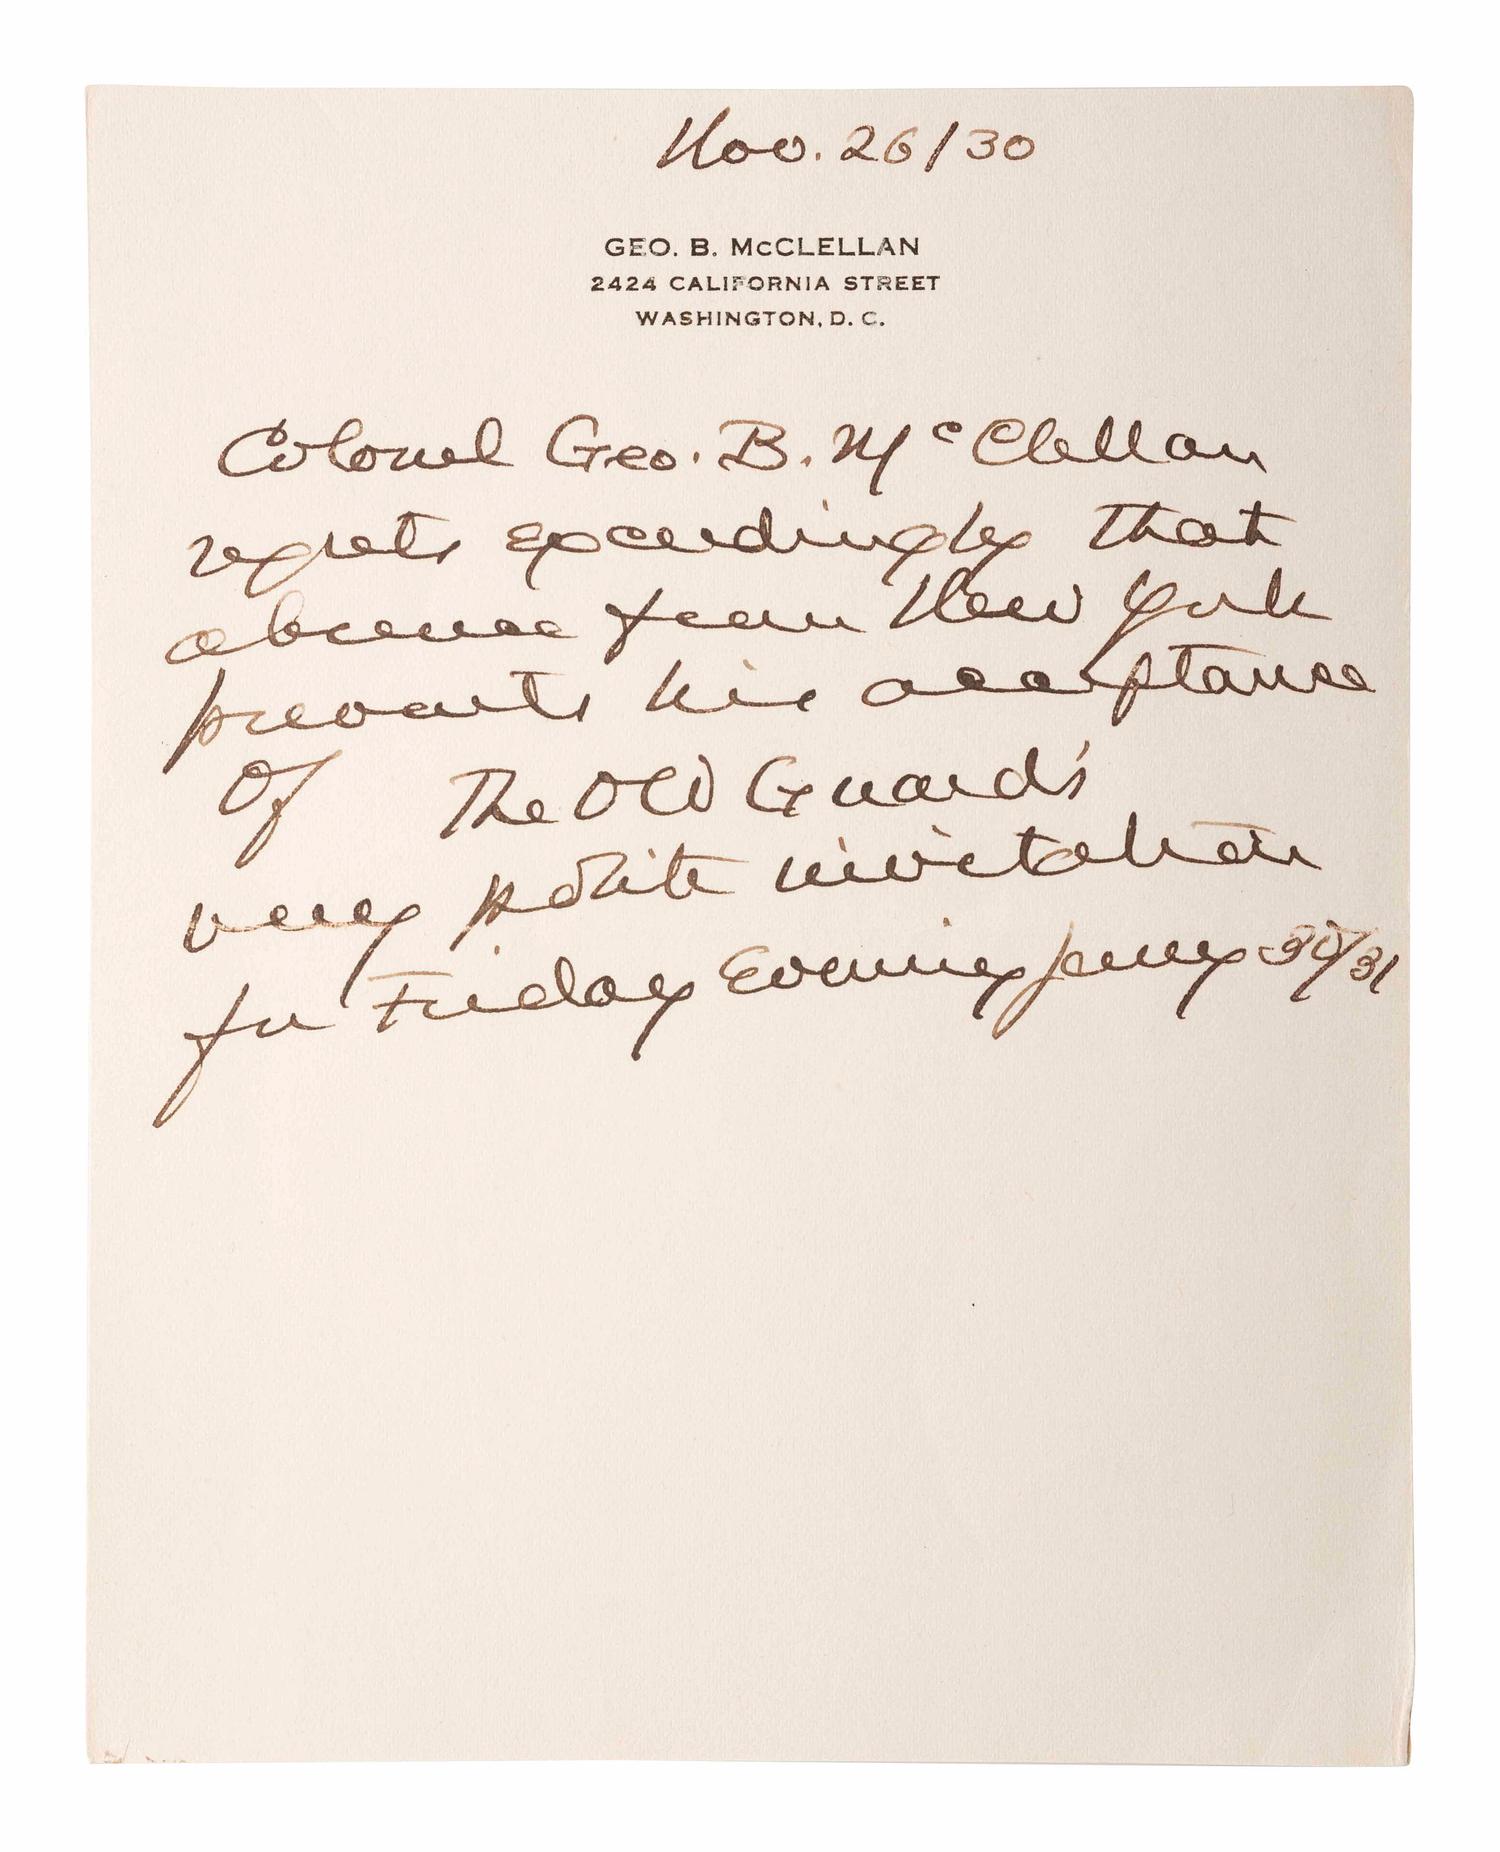 Nov. 26/30
GEO. B. McCLELLAN
2424 CALIFORNIA STREET
WASHINGTON, D. C.
Colonel Geo. B. McClellan
regrets exceedingly that
absence from New York
prevents his acceptance
Of The Old Guard's
very polite invitation
for Friday Evening Jany 30/31